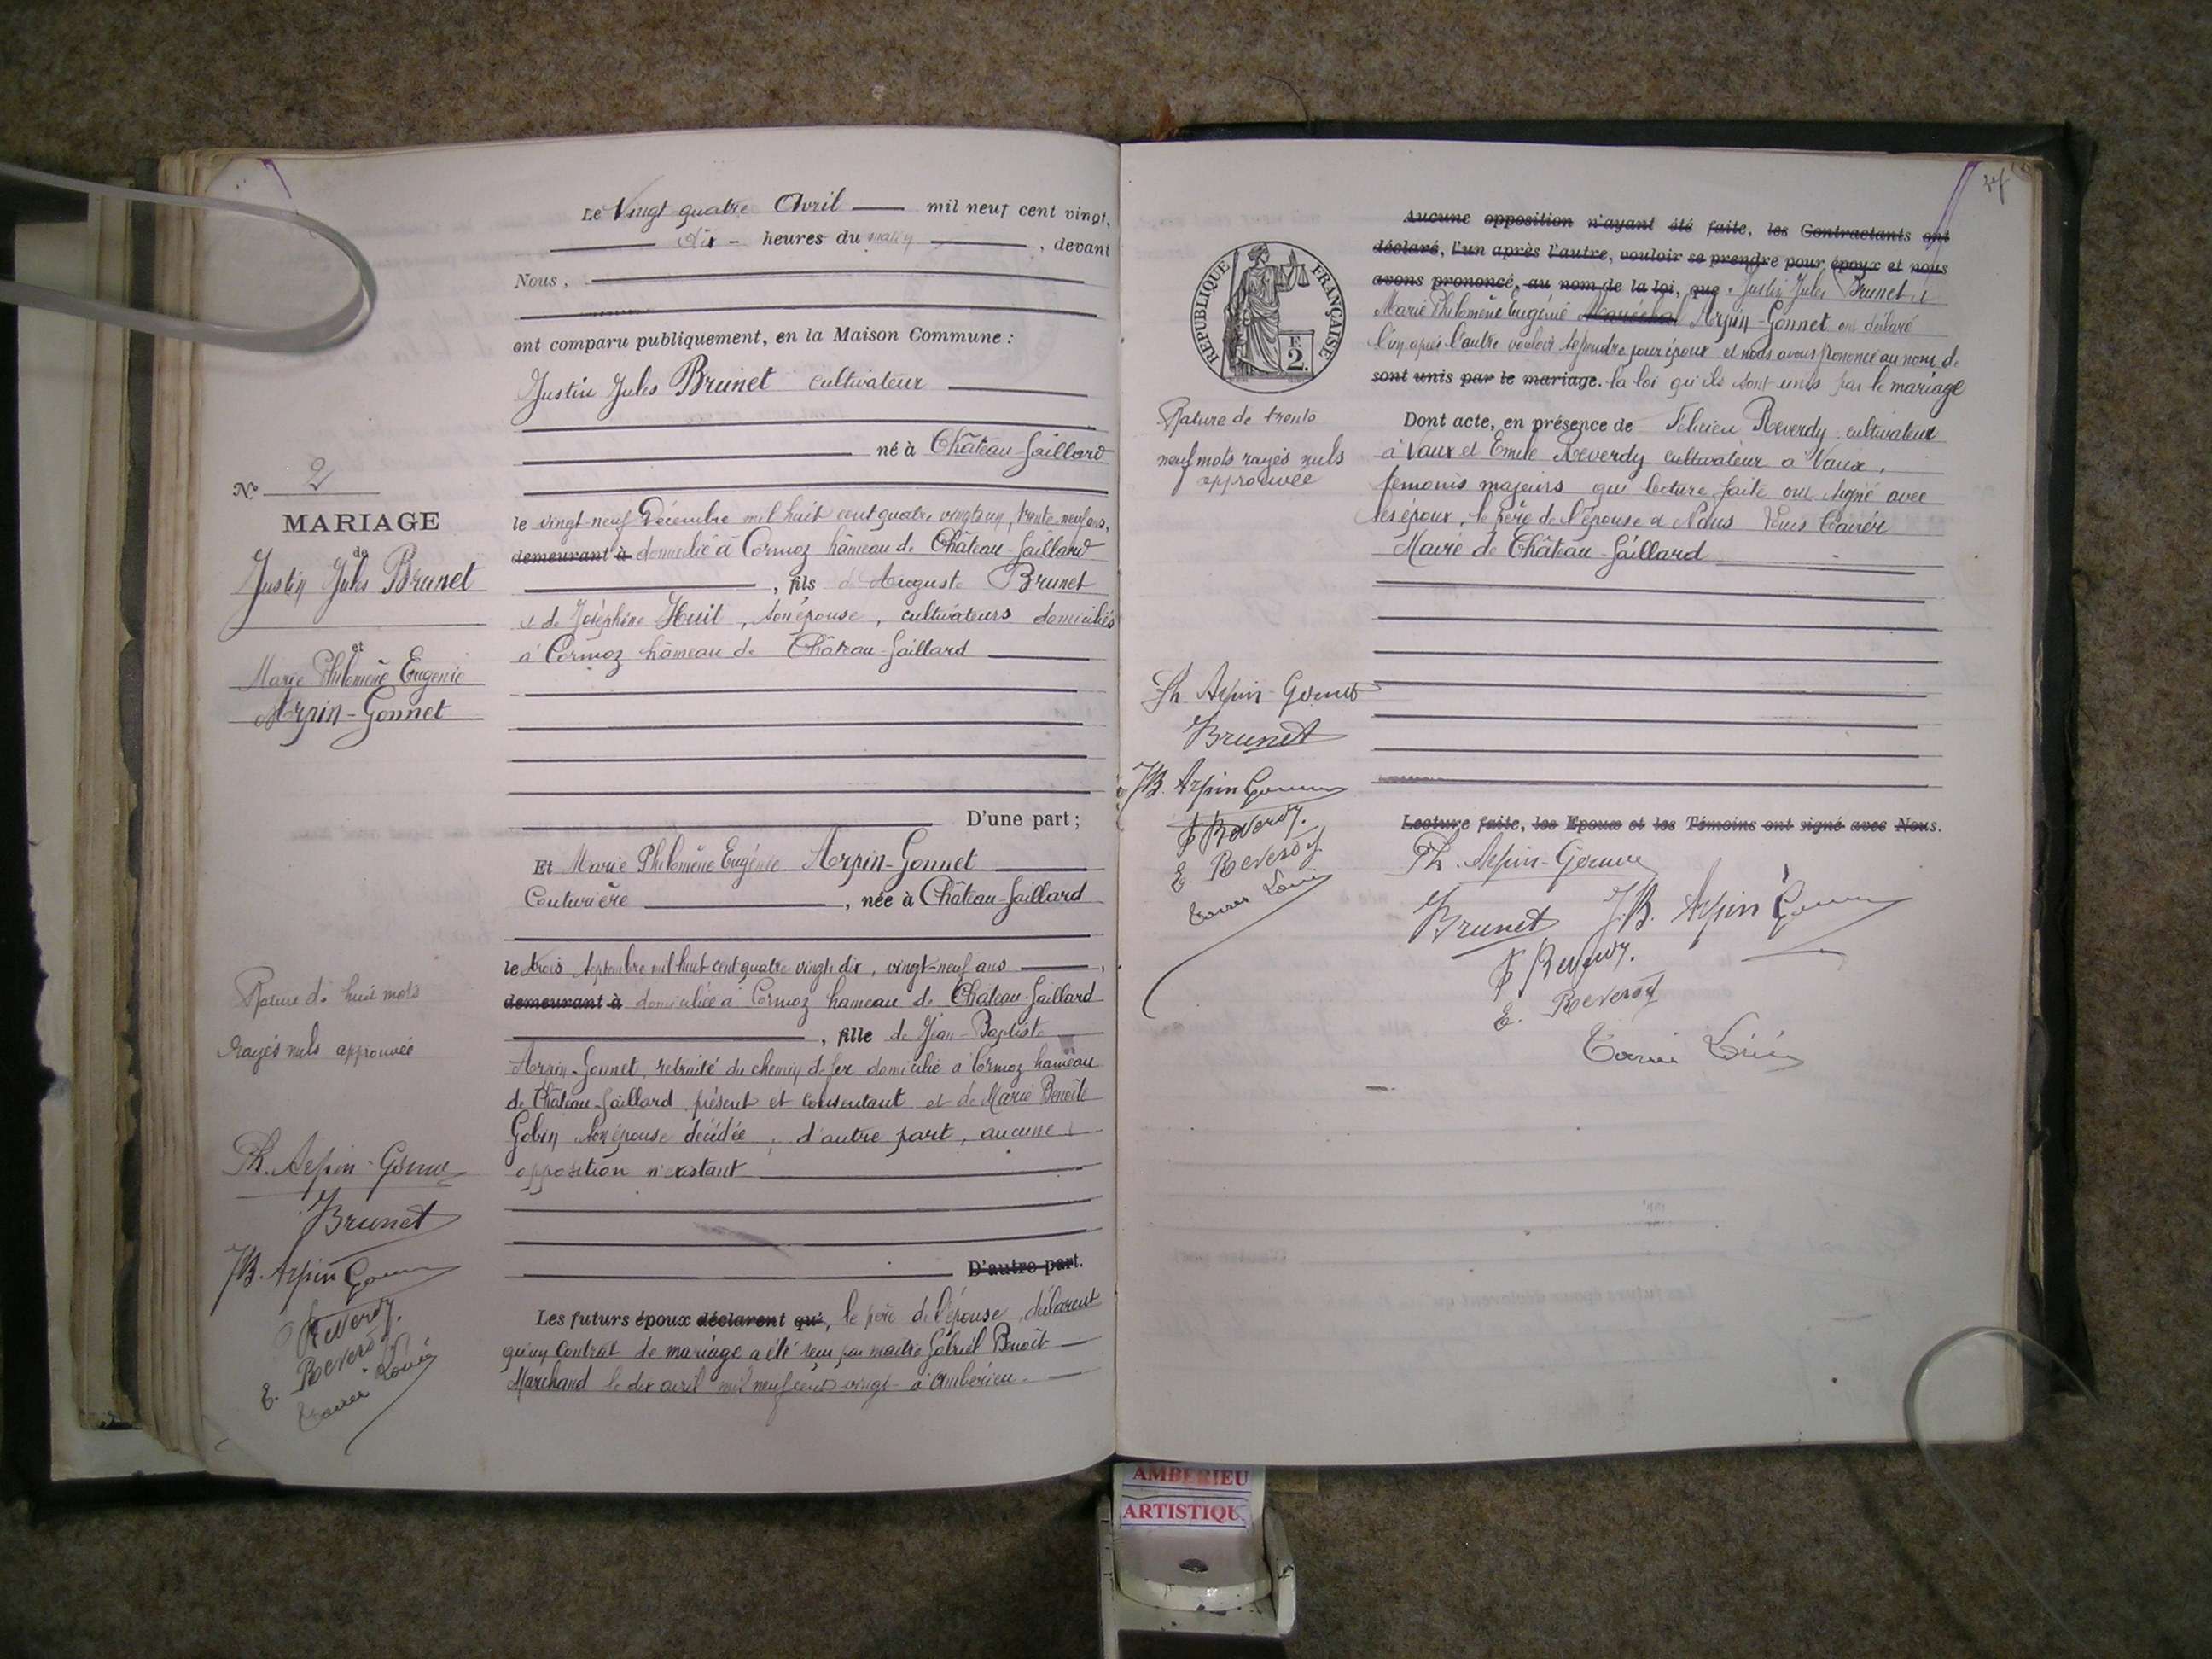 Le Vingt quatre Avril mil neuf cent vingt,
dix heures du matin, devant
Nous,
ont comparu publiquement, en la Maison Commune :
Justin Jules Brunet cultivateur
né à Château-Gaillard
le vingt-neuf Décembre mil huit cent quatre vingt un, trente neuf ans,
demeurant à domicilié à Cormoz hameau de Château-Gaillard
, fils d'Auguste Brunet
et de Joséphine Huit, son épouse, cultivateurs domiciliés
à Cormoz hâmeau de Château-Gaillard
D'une part ;
Et Marie Philomène Eugénie Arpin-Gonnet
Couturière, née à Château-Gaillard
le trois Septembre mil huit cent quatre vingt dix, vingt-neuf ans,
demeurant à domiciliée à Cormoz hameau de Château-Gaillard
, fille de Jean-Baptiste
Arpin-Gonnet, retraité du chemin de fer domicilié à Cormoz hameau
de Château-Gaillard présent et consentant et de Marie Benoîte
Gobin son épouse décédée, d'autre part, aucune
opposition n'existant
D'autre part.
Les futurs époux déclarent qu', le père de l'épouse déclarent
qu'un Contrat de mariage a été reçu par maître Gabriel Benoît
Marchand le dix avril mil neuf cent vingt à Ambérieu.
N° 2
MARIAGE
de
Justin Jules Brunet
et
Marie Philomène Eugénie
Arpin-Gonnet
Rature de huit mots
rayés nuls approuvée
Ph. Arpin-Gonnet
Brunet
JB. Arpin Gonnet
F Reverdy.
E. Reverdy
Louis
24
RÉPUBLIQUE FRANÇAISE
F.
2.
Aucune opposition n'ayant été faite, les Contractants ont
déclaré, l'un après l'autre, vouloir se prendre pour époux et nous
avons prononcé, au nom de la loi, que Justin Jules Brunet et
Marie Philomène Eugénie Maréchal Arpin-Gonnet ont déclaré
l'un après l'autre vouloir se prendre pour époux et nous avons prononcé au nom de
sont unis par le mariage. la loi qu'ils sont unis par le mariage
Dont acte, en présence de Félicien Reverdy cultivateur
à Vaux et Emile Reverdy cultivateur à Vaux,
témoins majeurs qui lecture faite ont signé avec
les époux, le père de l'épouse et Nous Louis
Maire de Château-Gaillard
Rature de trente
neuf mots rayés nuls
approuvée
Ph Arpin-Gonnet
Brunet
JB. Arpin Gonnet
F Reverdy.
E. Reverdy
Louis
Lecture faite, les Epoux et les Témoins ont signé avec Nous.
Ph. Arpin-Gonnet
Brunet J.B. Arpin Gonnet
F Reverdy.
E. Reverdy
Louis
AMBERIEU
ARTISTIQU